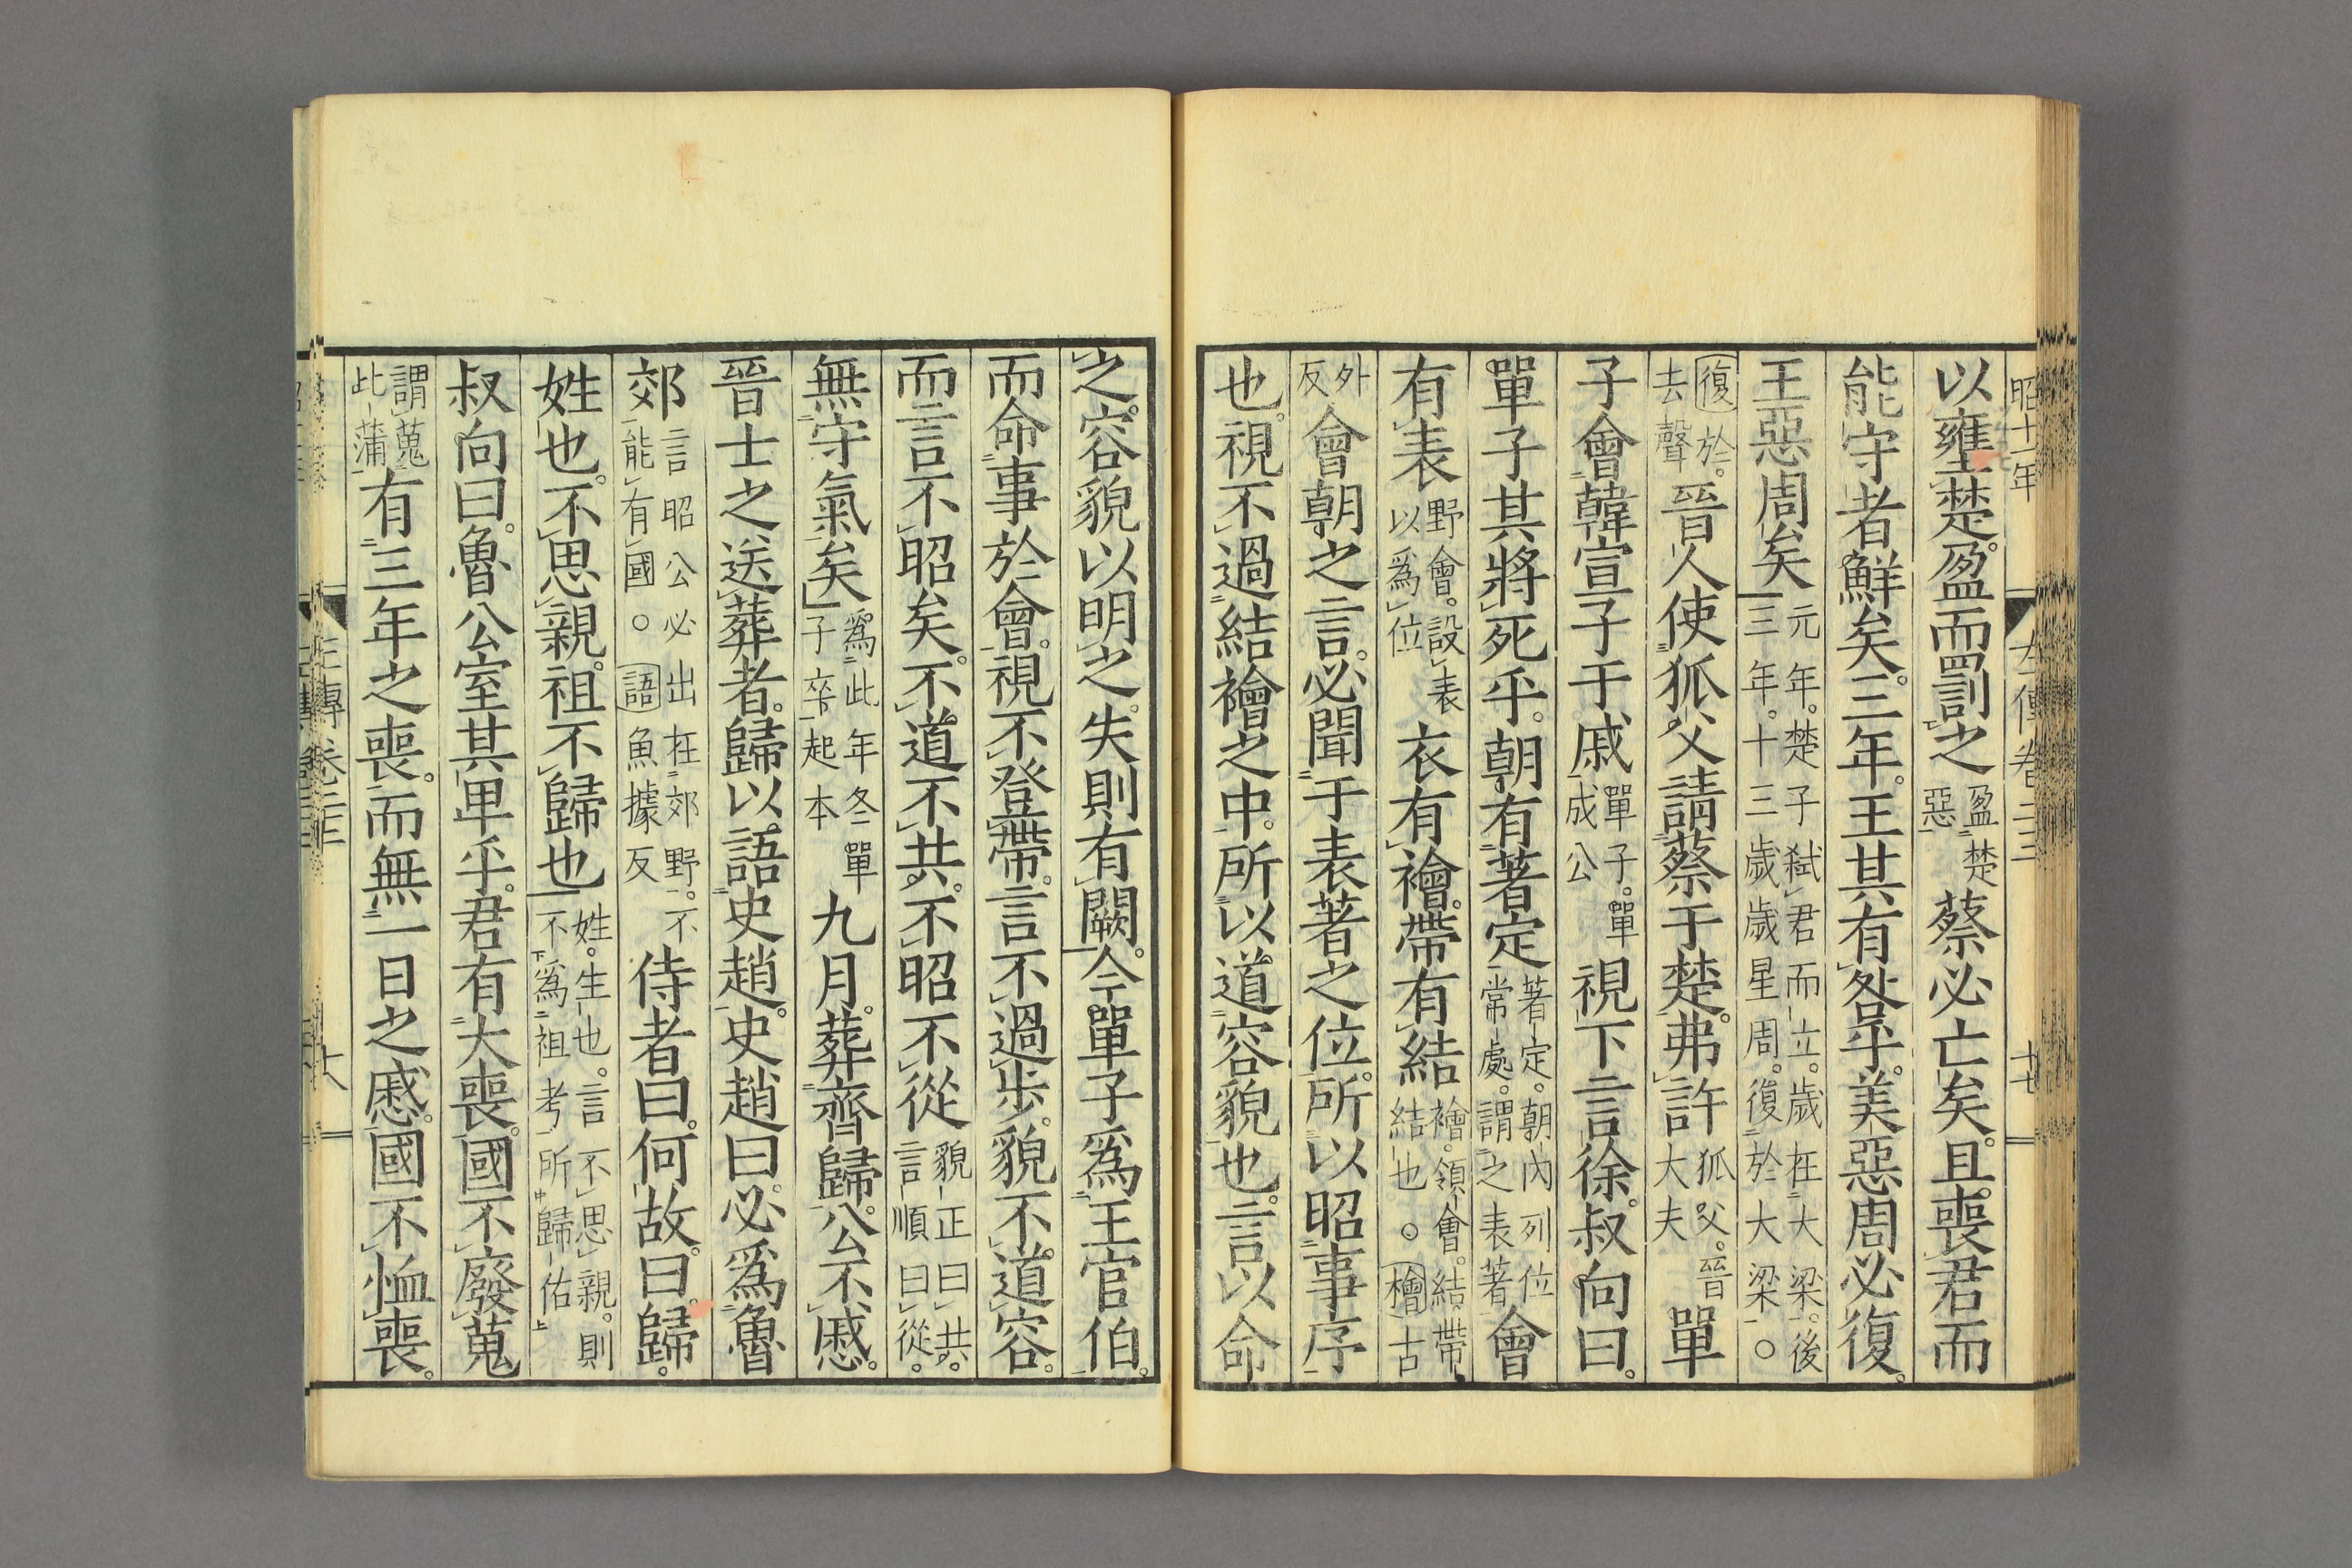 昭十一年 左傳卷二三 十七
以壅楚盈而罰之盈楚惡蔡必亡矣且喪君而
能守者鮮矣三年王其有咎乎美惡周必復
王惡周矣元年楚子弒君而立歲在大梁後三年十三歲歲星周復於大梁○
復於去聲晉人使狐父請蔡于楚弗許狐父晉大夫單
子會韓宣子于戚單子單成公視下言徐叔向曰
單子其將死乎朝有著定著定朝內列位常處謂之表著會
有表野會設表以爲位衣有襘帶有結襘領會結帶結也○檜古
外反會朝之言必聞于表著之位所以昭事序
也視不過結襘之中所以道容貌也言以命
之容貌以明之失則有闕今單子爲王官伯
而命事於會視不登帶言不過步貌不道容
而言不昭矣不道不共不昭不從貌正曰共言順曰從
無守氣矣爲此年冬單子卒起本九月葬齊歸公不慼
晉士之送葬者歸以語史趙史趙曰必爲魯
郊言昭公必出在郊野不能有國○語魚據反侍者曰何故曰歸
姓也不思親祖不歸也姓生也言不思親則不爲祖考所歸佑
叔向曰魯公室其卑乎君有大喪國不廢蒐
謂蒐此蒲有三年之喪而無一日之慼國不恤喪